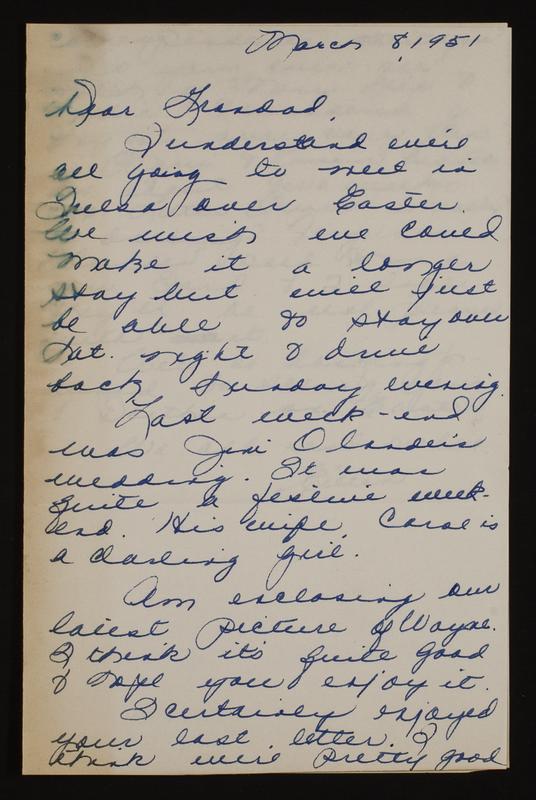 March 8, 1951
Dear Grandad,
I understand we're
all going to meet in
Tulsa over Easter.
We wish we could
make it a longer
stay but will just
be able to stay over
Sat. night & drive
back Sunday evening.
Last week-end
was Jim Olander's
wedding. It was
quite a festive week-
end. His wife, Carol is
a darling girl.
Am enclosing our
latest picture of Wayne.
I think it's quite good
& hope you enjoy it.
I certainly enjoyed
your last letter. I
think we're pretty good